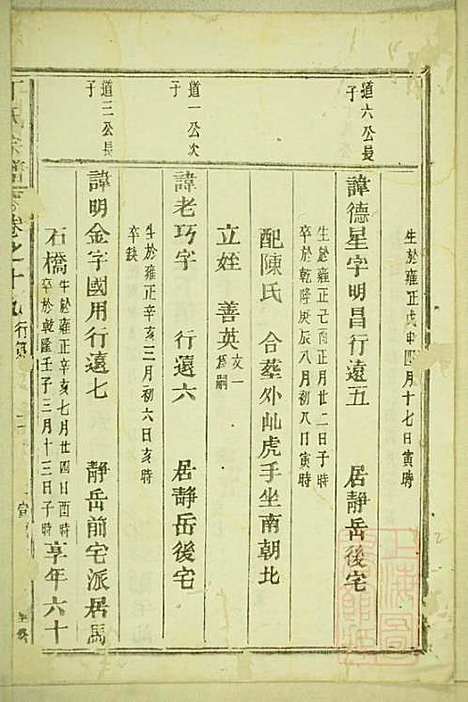 生於雍正戊申四月十七日寅時
道六公長子
諱德星字明昌行遠五 居靜岳後宅
生於雍正己酉正月廿二日子時
卒於乾隆庚辰八月初八日寅時
配陳氏 合葬外乢虎手坐南朝北
立姪 善英 文一爲嗣
道一公次子
諱老巧字 行遠六 居靜岳後宅
生於雍正辛亥三月初六日亥時
卒缺
道三公長子
諱明金字國用行遠七 靜岳前宅派居馬
石橋 生於雍正辛亥七月廿四日酉時
卒於乾隆壬子三月十三日子時 享年六十
氏宗譜 卷之十九 行
上海圖